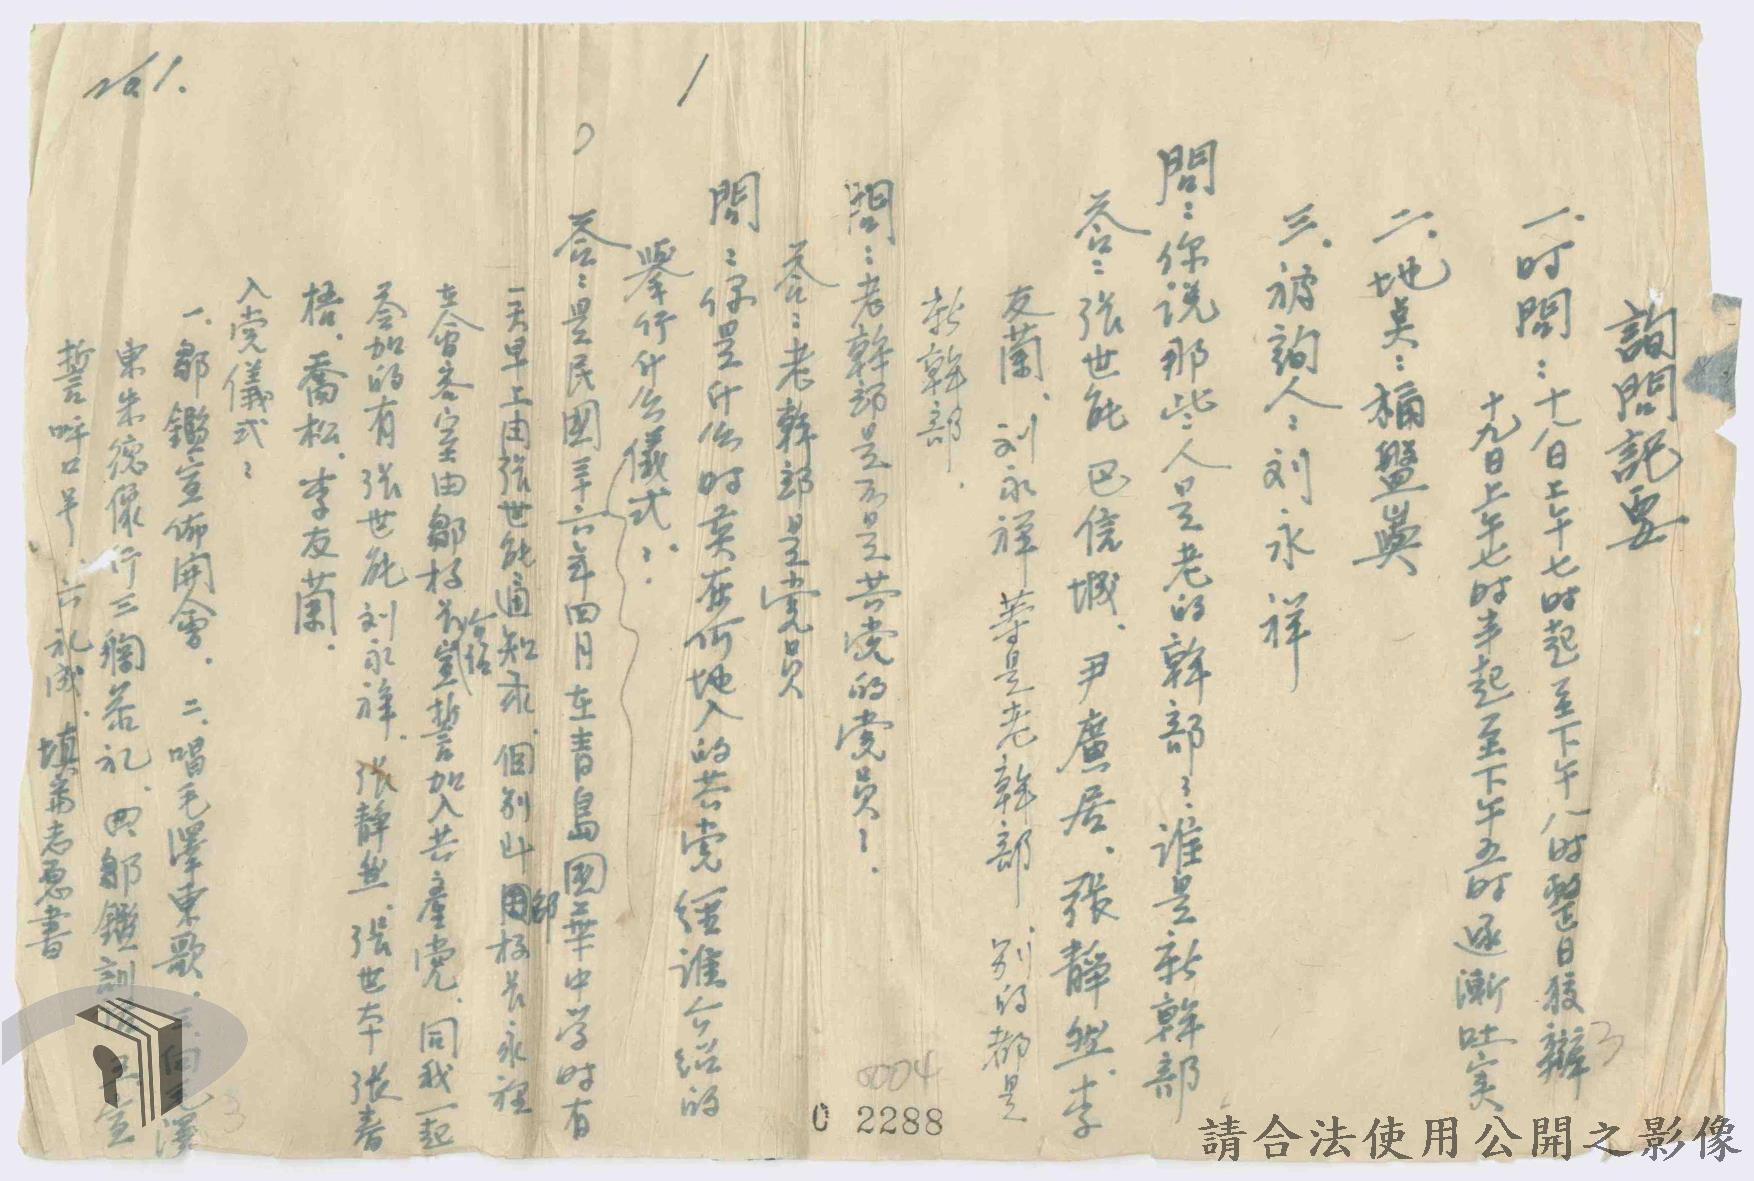 詢問記要
一.时間：十八日上午七时起至下午八时整日狡辯
十九日上午七时半起至下午五时逐漸吐实
二.地点：桶盤嶼
三.被詢人：刘永祥
問：你说那些人是老的幹部？誰是新幹部
答：張世能 巴信城、尹廣居、張靜然、李
友蘭、刘永祥等是老幹部 别的都是
新幹部.
問：老幹部是不是共党的党員？
答：老幹部是党員
問：你是什么时莫在何地入的共党 經谁介绍的
舉行什么儀式？
答：是民國卅六年四月在青島国華中学时有
一天早上由張世能通知我.個别叫 到校长永裡
去會客室由鄒校长宣誓加入共產党、同我一起
介绍
参加的有張世能刘永祥.張靜然.張世本張春
梧.喬松.李友蘭.
入党儀式：
一.鄒鑑宣佈開會. 二.唱毛澤東歌. 三.向毛澤
東朱德像行三鞠恭礼. 四.鄒鑑訓 宣
誓呼口号 六礼成.填 志愿書
No1.
1
3
3
0004
C 2288
請合法使用公開之影像